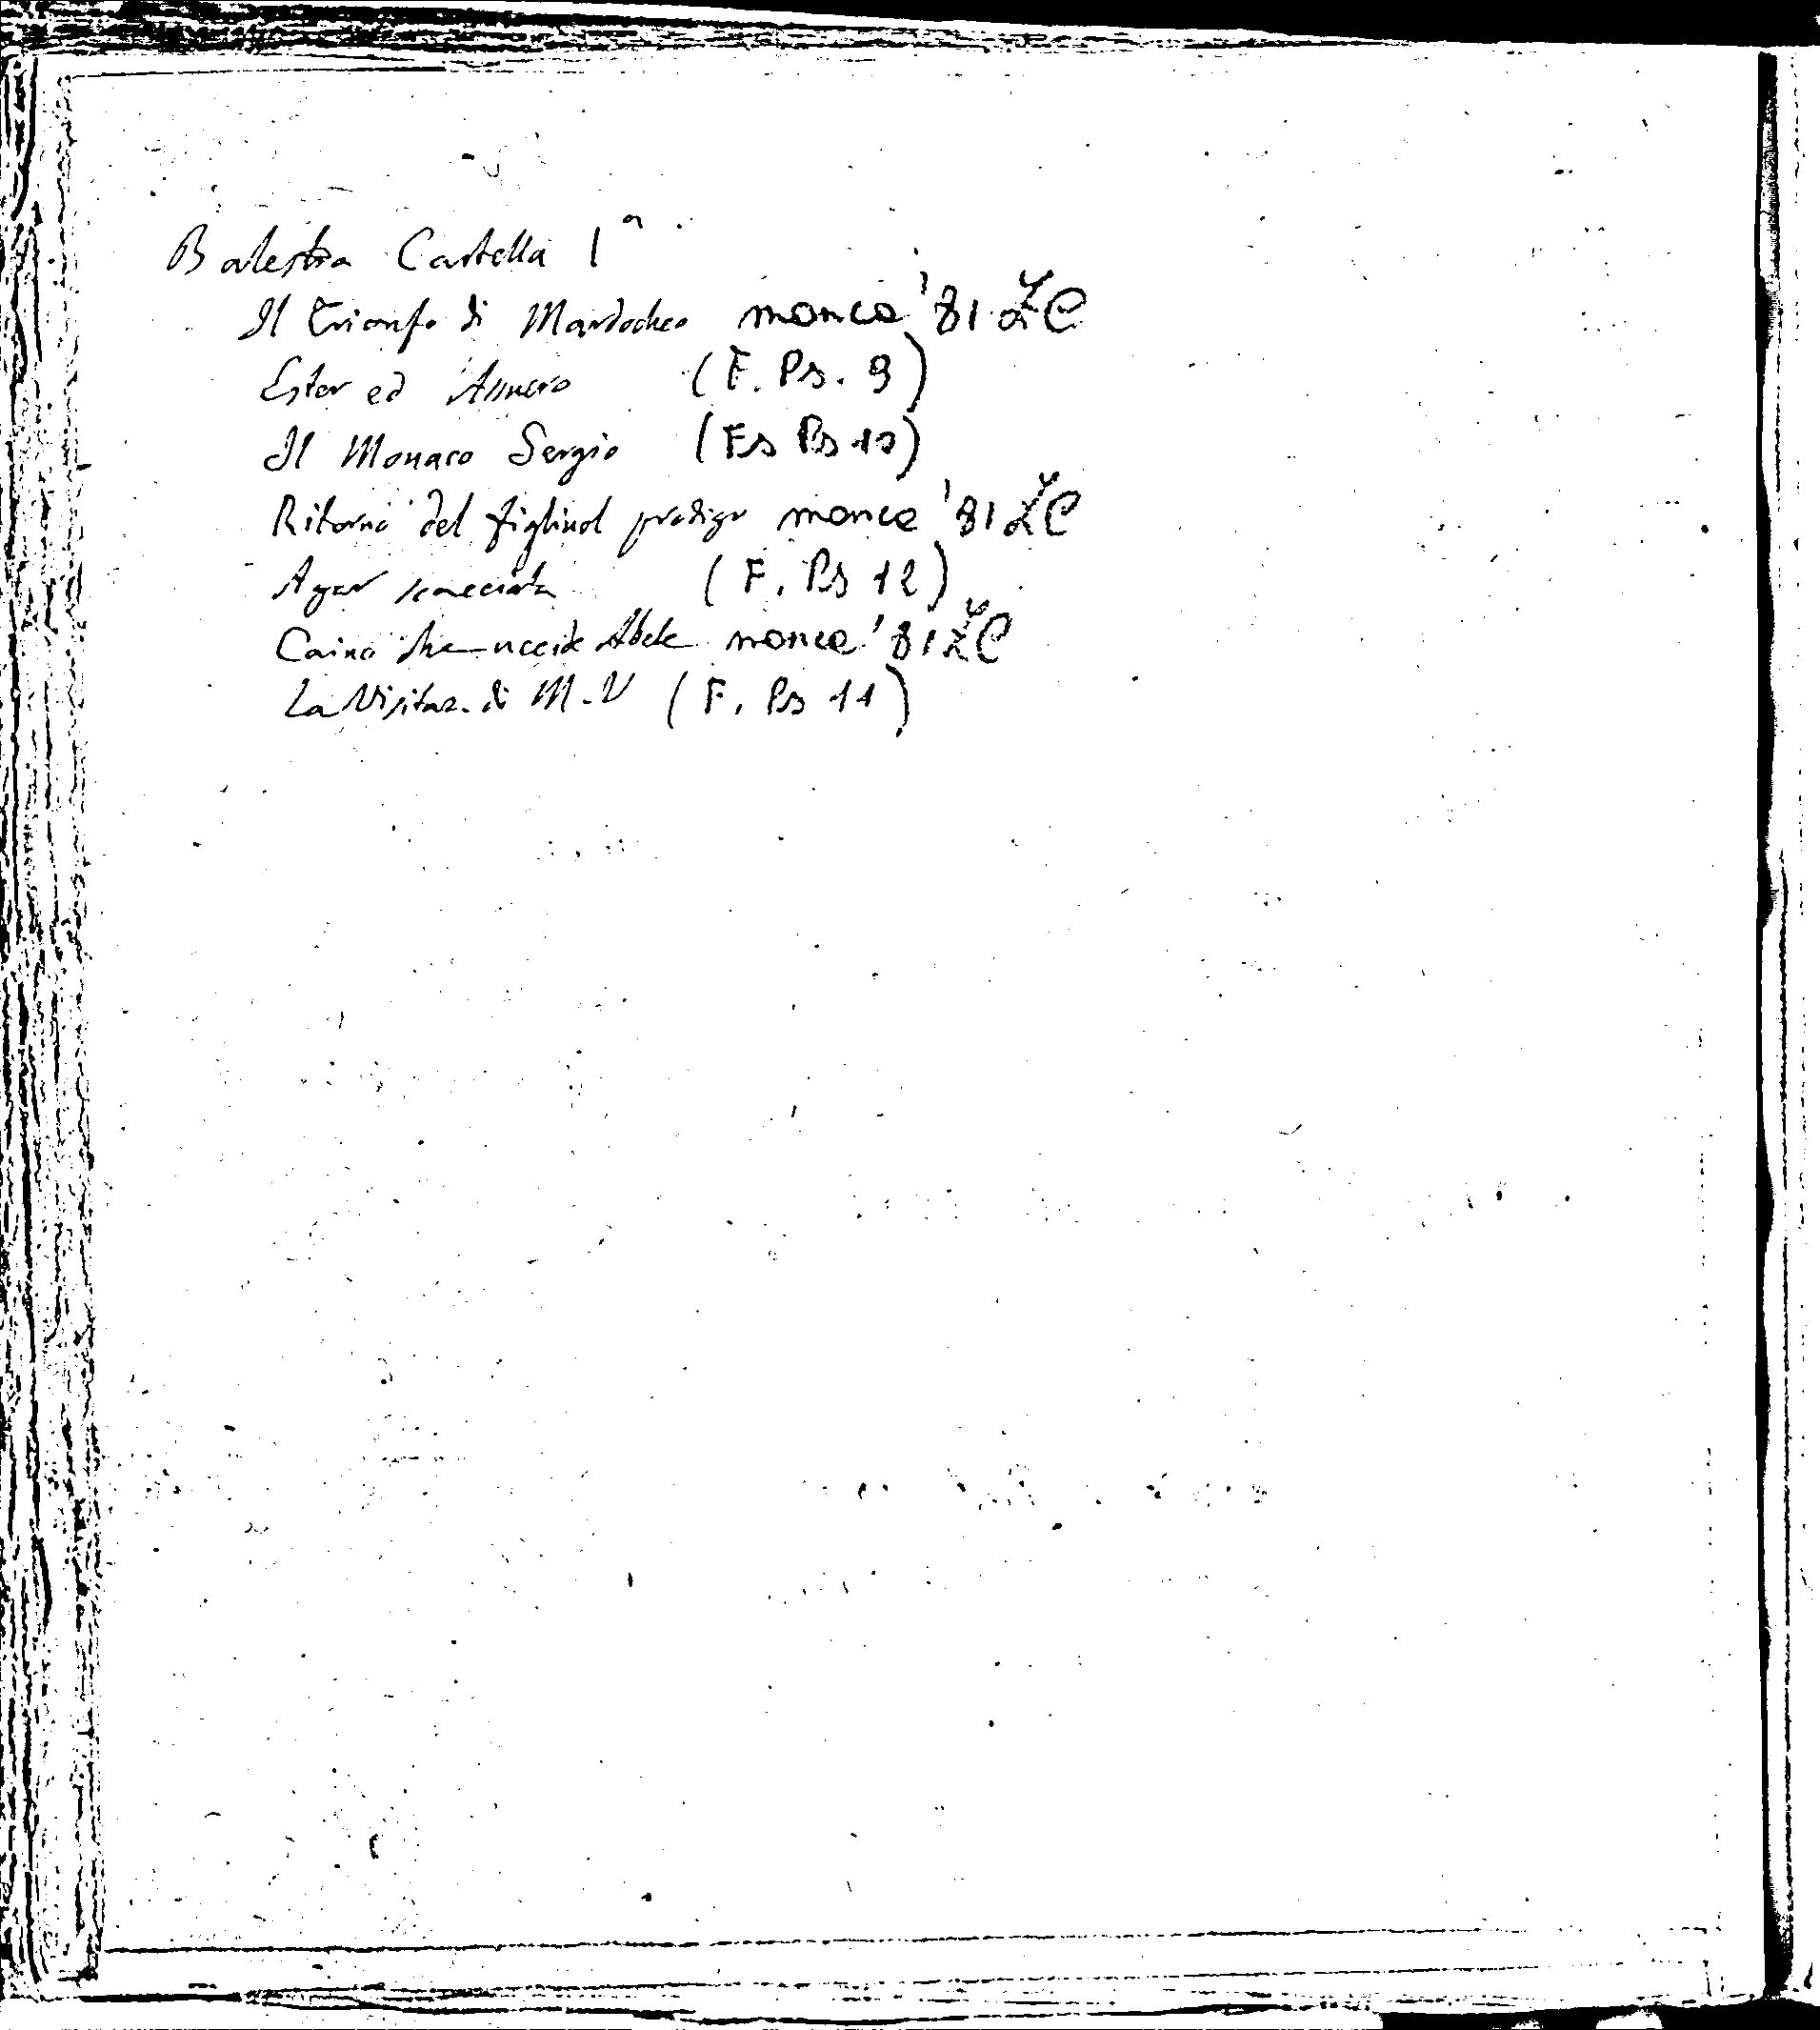 Balestra Cartella 1ª
Il Trionfo di Mardocheo manca '81 ŽC
Ester ed Assuero (F. Ps. 9)
Il Monaco Sergio (Fs Ps 10)
Ritorno del figliuol prodigo manca '81 ŽC
Agar scacciata (F. Ps 12)
Caino che uccide Abele manca '81 ŽC
La Visitaz. di M.V (F. Ps 11)